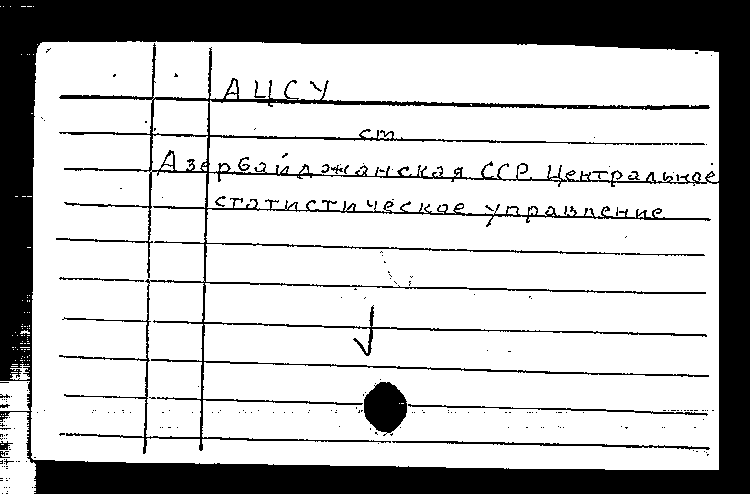 АЦСУ
ст.
Азербайджанская ССР. Центральное
статистическое управление